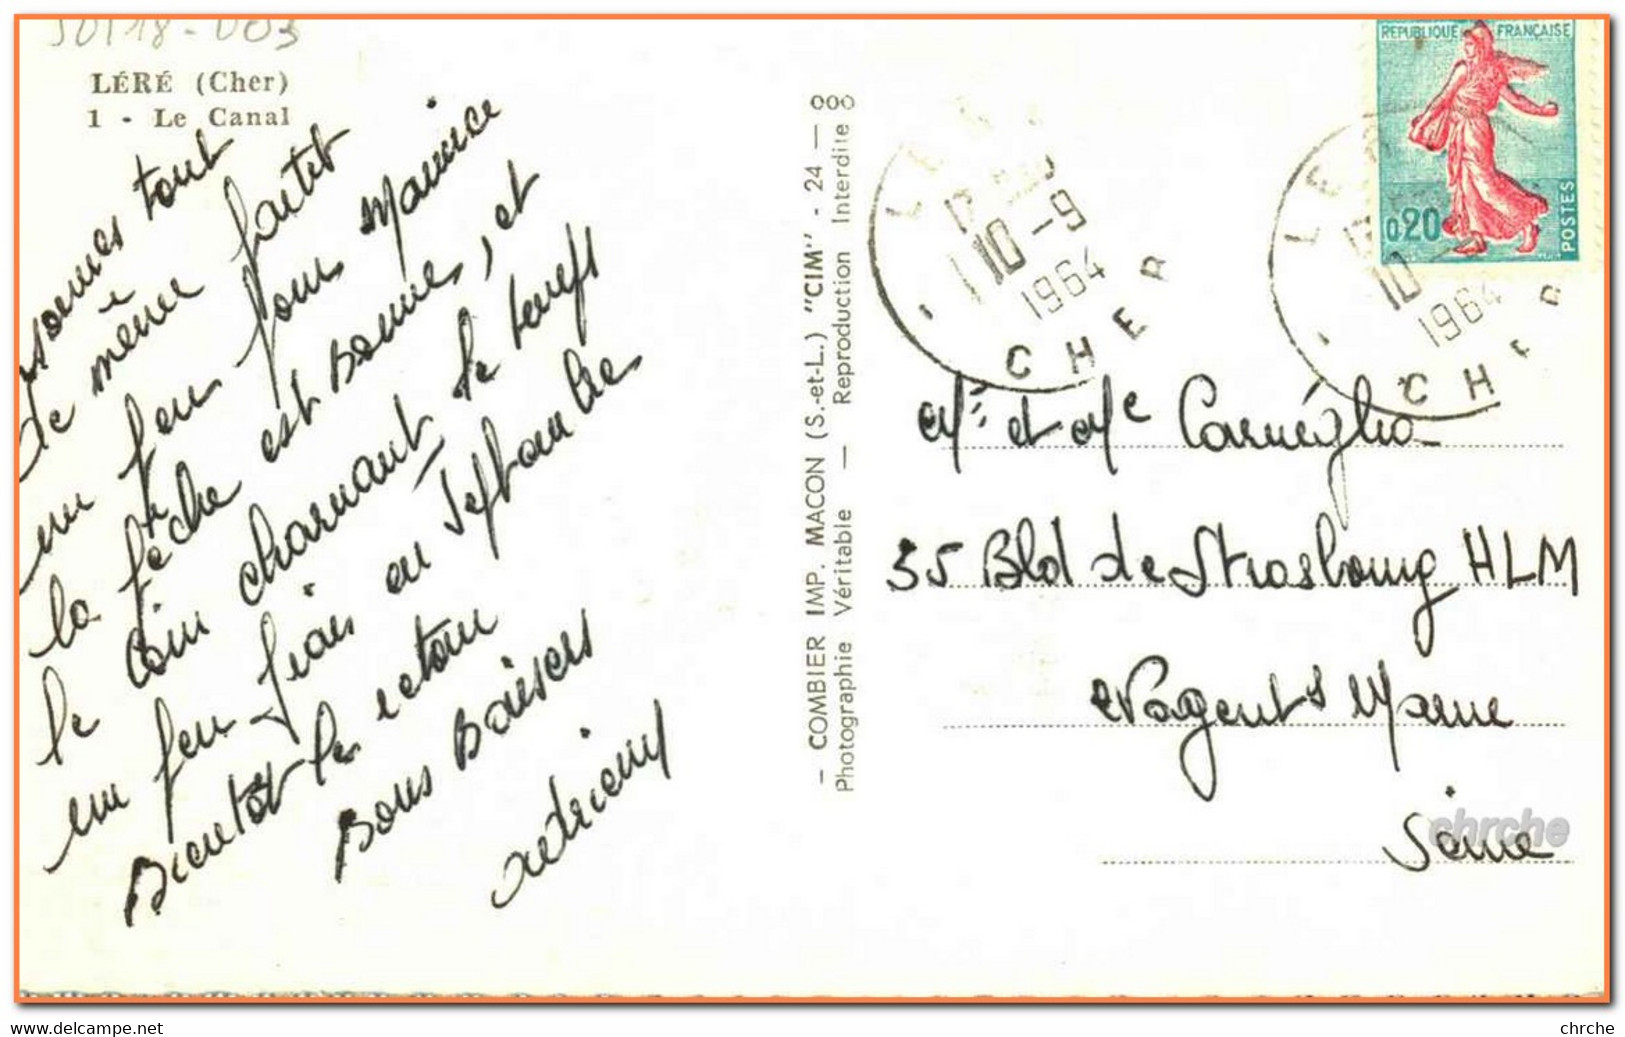 LÉRÉ (Cher)
1 - Le Canal
tout
de même
un peu pour Maurice
la pêche est bonne, et
le coin charmant le temps
un peu frais en Septembre
Bientôt le retour
Bons Baisers
— COMBIER IMP. MACON (S.-et-L.) "CIM" - 24 — 000
Photographie Véritable — Reproduction Interdite
RÉPUBLIQUE FRANÇAISE
0,20
POSTES
10 -9
1964
CHER
10
1964
CHER
Mr et Me
35 Bld de Strasbourg HLM
Nogent s Marne
Seine
chrche
www.delcampe.net
chrche